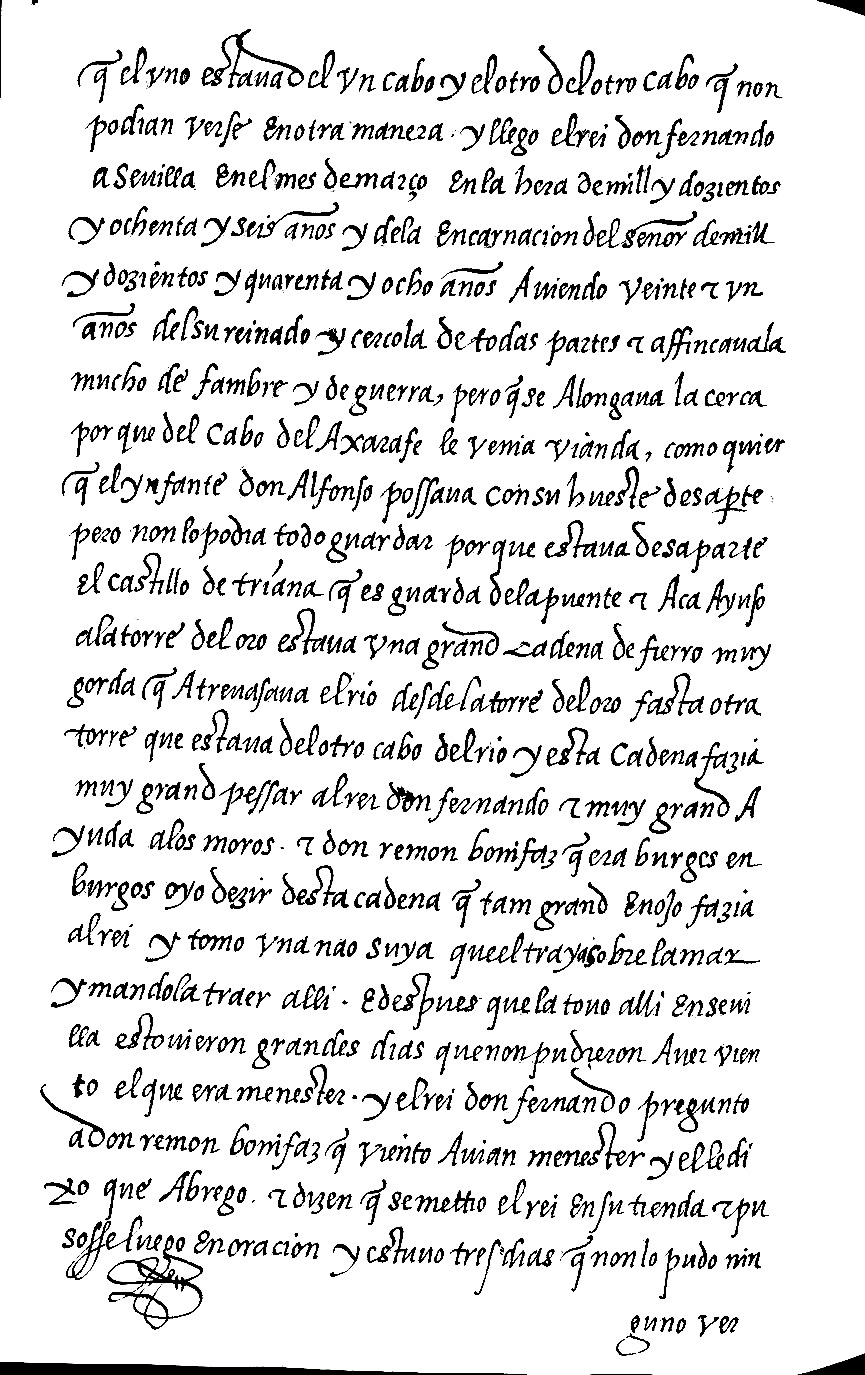 q̃ el vno estaua del vn cabo y el otro del otro cabo q̃ non
podian verse En otra manera . y llego el rei don fernando
a Seuilla En el mes de março En la hera de mill y dozientos
y ochenta y seis años y dela Encarnacion del señor de mill
y dozientos y quarenta y ocho años Auiendo veinte τ vn
años del su reinado y cercola de todas partes τ affincauala
mucho de fambre y de guerra, pero q̃ se Alongaua la cerca
por que del Cabo del Axarafe le venia vianda, como quier
q̃ el ynfante don Alfonso possaua con su hueste desaꝑte
pero non lo podia todo guardar por que estaua desaparte
El castillo de triana q̃ es guarda dela puente τ Aca Ayuso
ala torre del oro estaua vna grand cadena de fierro muy
gorda q̃ Atreuasaua el rio desde la torre del oro fasta otra
torre que estaua del otro cabo del rio y esta Cadena fazia
muy grand pessar al rei don fernando τ muy grand A
yuda alos moros . τ don remon bonifaz q̃ era burges en
burgos oyo dezir desta cadena q̃ tam grand Enojo fazia
al rei y tomo vna nao suya que el traya sobre la mar
y mandola traer alli . E despues que la touo alli En seui
lla estouieron grandes dias que non pudieron Auer vien
to el que era menester . y el rei don fernando pregunto
a don remon bonifaz q̃ viento Auian menester y el le di
xo que Abrego . τ dizen q̃ se metio el rei En su tienda τ pu
sosse luego En oracion y estuuo tres dias q̃ non lo pudo nin
guno ver